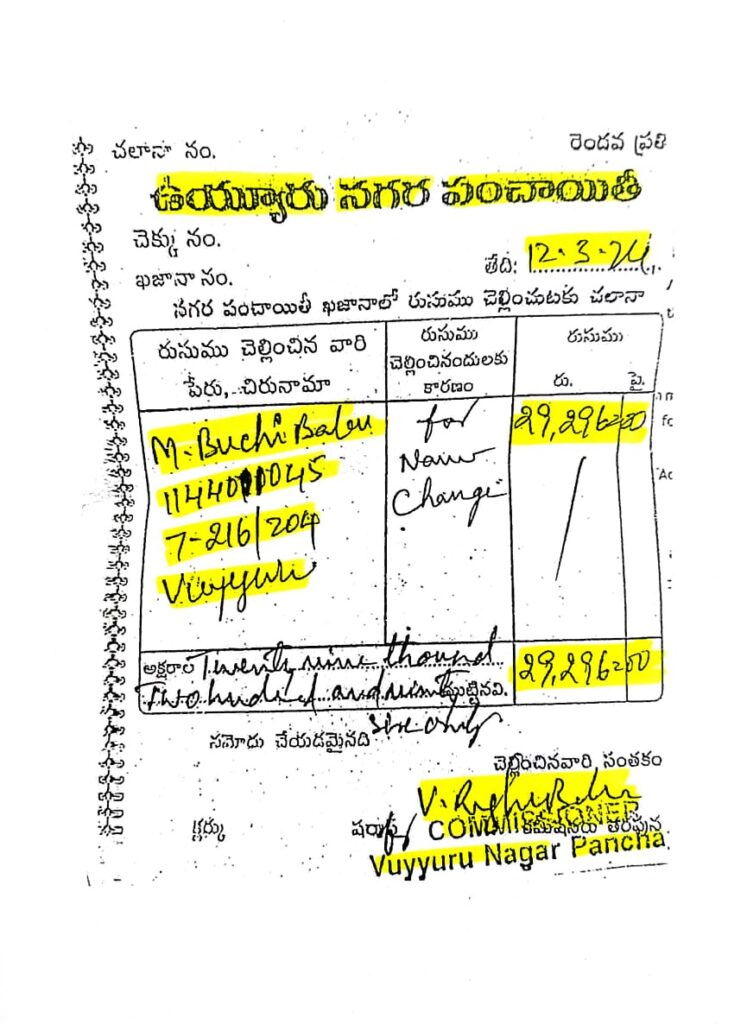 చలానా నం.
రెండవ ప్రతి
ఉయ్యూరు నగర పంచాయితీ
చెక్కు నం.
తేది: 12.3.24
ఖజానా నం.
నగర పంచాయితీ ఖజానాలో రుసుము చెల్లించుటకు చలానా
రుసుము చెల్లించిన వారి పేరు, చిరునామా
రుసుము చెల్లించినందులకు కారణం
రుసుము
రు. పై.
M. Buchi Babu
1144010045
7-216/204
Vuyyuru
for
Name
Change
29,296=00
అక్షరాల Twenty nine thound
Two hundred and ninty ముట్టినవి.
six only
29,296=00
సమోదు చేయడమైనది
చెల్లించినవారి సంతకం
క్లర్కు
షరాఫ్
కమీషనరు తరపున
COMMISSIONER
Vuyyuru Nagar Pancha